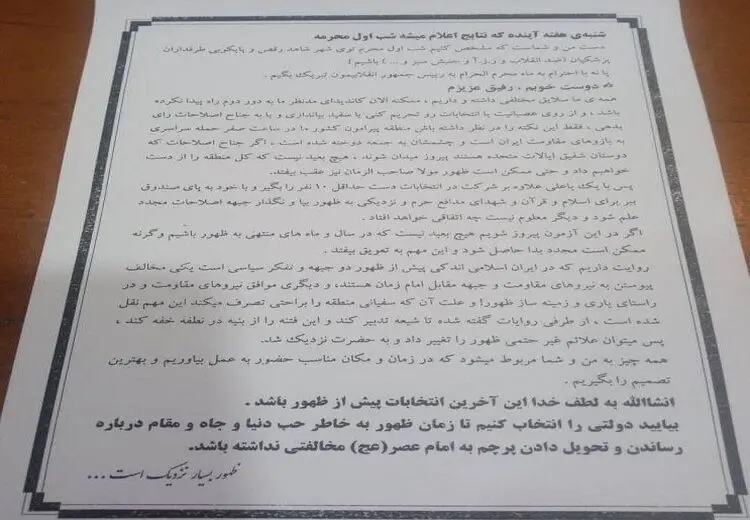 شنبه‌ی هفته آینده که نتایج اعلام میشه شب اول محرمه
دست من و شماست که مشخص کنیم شب اول محرم توی شهر شاهد رقص و پایکوبی طرفداران
پزشکیان (ضد انقلاب و ز.ز.آ و جنبش سبز و ... ) باشیم )
یا نه با احترام به ماه محرم الحرام به رییس جمهور انقلابیمون تبریک بگیم .
دوست خوبم ، رفیق عزیزم
همه ی ما سلایق مختلفی داشته و داریم ، ممکنه الان کاندیدای مدنظر ما به دور دوم راه پیدا نکرده
باشد ، و از روی عصبانیت با انتخابات رو تحریم کنی یا سفید بیاندازی و یا به جناح اصلاحات رای
بدهی ، فقط این نکته را در نظر داشته باش منطقه پیرامون کشور ما در ساعت صفر حمله سراسری
به بازوهای مقاومت ایران است و چشمشان به جمعه دوخته شده است ، اگر جناح اصلاحات که
دوستان شفیق ایالات متحده هستند پیروز میدان شوند ، هیچ بعید نیست که کل منطقه را از دست
خواهیم داد و حتی ممکن است ظهور مولا صاحب الزمان نیز عقب بیفتد.
پس با یک یاعلی علاوه بر شرکت در انتخابات دست حداقل ۱۰ نفر را بگیر و با خود به پای صندوق
ببر برای اسلام و قرآن و شهدای مدافع حرم و نزدیکی به ظهور بیا و نگذار جبهه اصلاحات مجدد
علم شود و دیگر معلوم نیست چه اتفاقی خواهد افتاد .
اگر در این آزمون پیروز شویم هیچ بعید نیست که در سال و ماه های منتهی به ظهور باشیم وگرنه
ممکن است مجدد بدا حاصل شود و این مهم به تعویق بیفتد .
روایت داریم که در ایران اسلامی اندکی پیش از ظهور دو جبهه و تفکر سیاسی است یکی مخالف
پیوستن به نیروهای مقاومت و جبهه مقابل امام زمان هستند، و دیگری موافق نیروهای مقاومت و در
راستای یاری و زمینه ساز ظهورا و علت آن که سفیانی منطقه را براحتی تصرف میکند این مهم نقل
شده است ، از طرفی روایات گفته شده تا شیعه تدبیر کند و این فتنه را از بنیه در نطفه خفه کند ،
پس میتوان علائم غیر حتمی ظهور را تغییر داد و به حضرت نزدیک شد.
همه چیز به من و شما مربوط میشود که در زمان و مکان مناسب حضور به عمل بیاوریم و بهترین
تصمیم را بگیریم .
انشاالله به لطف خدا این آخرین انتخابات پیش از ظهور باشد .
بیایید دولتی را انتخاب کنیم تا زمان ظهور به خاطر حب دنیا و جاه و مقام درباره
رساندن و تحویل دادن پرچم به امام عصر(عج) مخالفتی نداشته باشد.
ظهور بسیار نزدیک است...